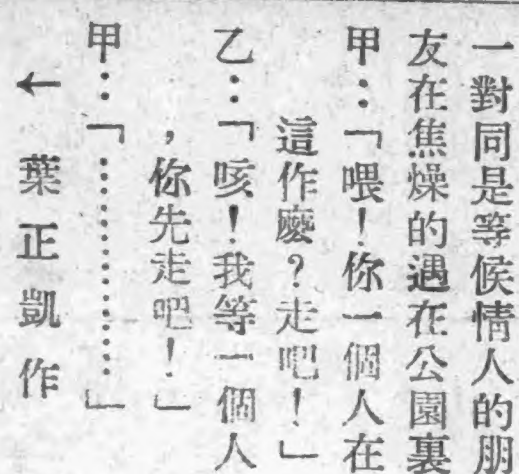 一對同是等候情人的朋
友在焦燥的遇在公園裏
甲：「喂！你一個人在
這作麽？走吧！」
乙：「咳！我等一個人
，你先走吧！」
甲：「…………」
← 葉正凱作